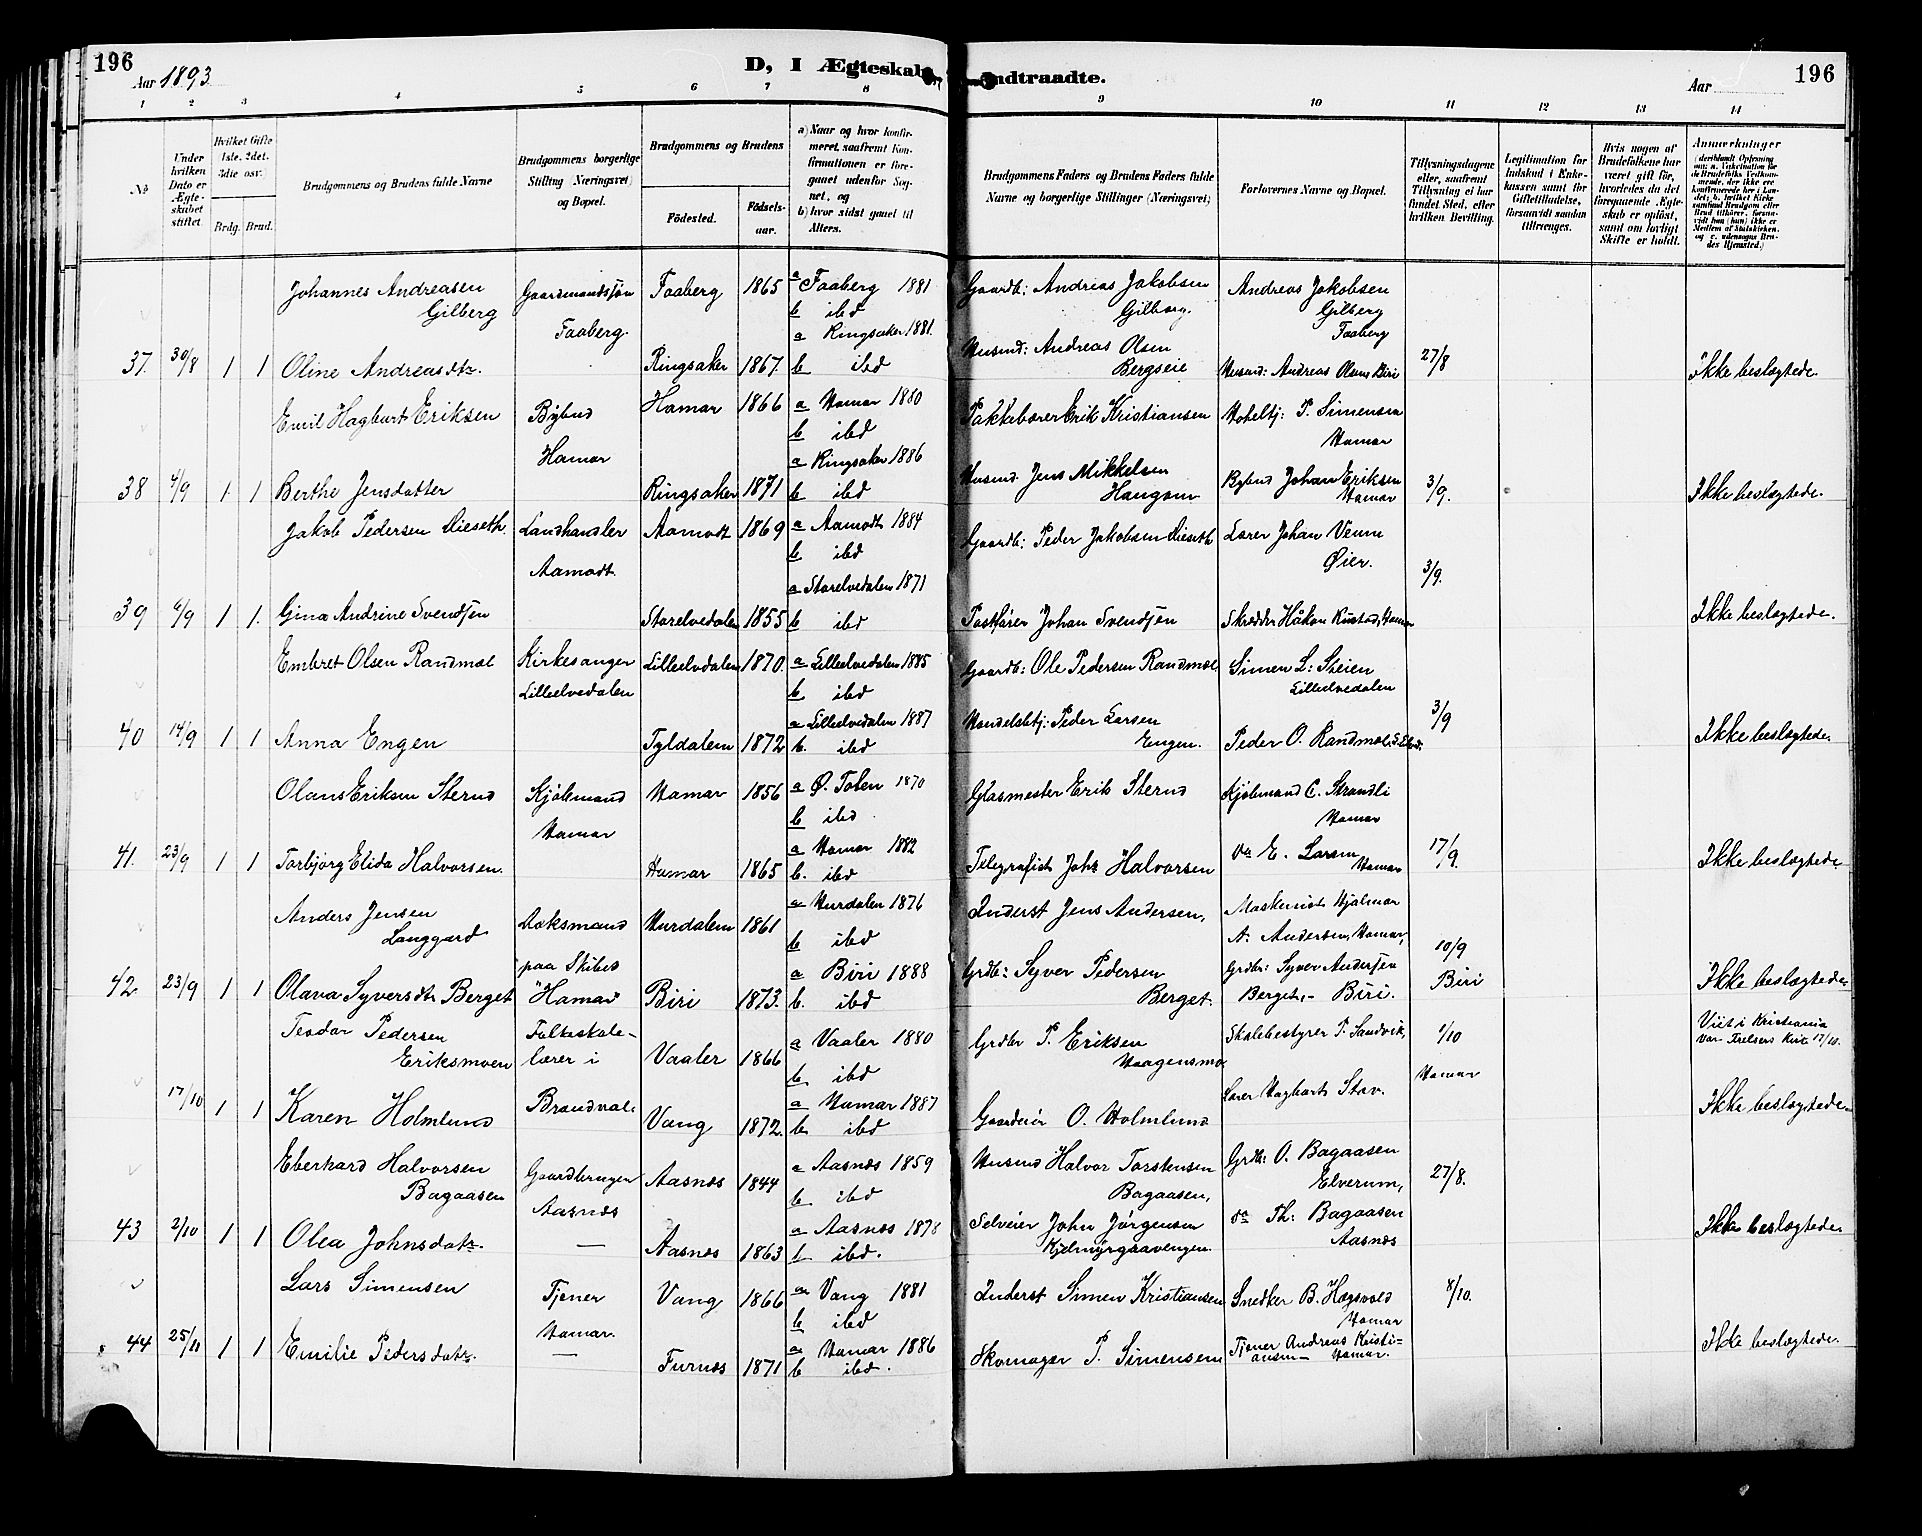 196
Aar 1893.
D, I Ægteskab Indtraadte.
Aar
196
1 2 3 4 5 6 7 8 9 10 11 12 13 14
No
Under hvilken Dato er Ægteskabet stiftet.
Hvilket Gifte 1ste. 2det. 3die osv.
Brdg. Brud.
Brudgommens og Brudens fulde Navne
Brudgommens borgerlige Stilling (Næringsvei) og Bopæl.
Brudgommens og Brudens
Fødested.
Fødselsaar.
a) Naar og hvor konfirmeret, saafremt Konfirmationen er foregaaet udenfor Sognet, og
b) hvor sidst gaaet til Alters.
Brudgommens Faders og Brudens Faders fulde Navne og borgerlige Stillinger (Næringsvei)
Forlovernes Navne og Bopæl.
Tillysningsdagene eller, saafremt Tillysning ei har fundet Sted, efter hvilken Bevilling.
Legitimation for Indskud i Enkekassen samt for Giftetilladelse, forsaavidt saadan tiltrænges.
Hvis nogen af Brudefolkene har været gift før, hvorledes da det foregaaende Ægteskab er opløst, samt om lovligt Skifte er holdt.
Anmærkninger
Johannes Andreasen Gilberg
Gaardmandssøn Faaberg.
Faaberg 1865
a Faaberg 1881
b ibd
Gaardb: Andreas Jakobsen Gilberg.
Andreas Jakobsen Gilberg Faaberg
37. 30/8 1 1 Oline Andreasdtr.
Ringsaker 1867.
a Ringsaker 1881.
b ibd
Husmd: Andreas Olsen Bergseie
Husmd: Andreas Olsen Biri
27/8
Ikke beslægtede.
Emil Hagbart Eriksen
Bybud Hamar
Hamar 1866
a Hamar 1880
b ibd
Pakkebærer Erik Kristiansen
Hotelbtj: P. Simensen Hamar
38 4/9 1. 1 Berthe Jensdatter
Ringsaker 1871
a Ringsaker 1886
b ibd
Husmd Jens Mikkelsen Haugom
Bybud Johan Eriksen Hamar
3/9.
Ikke beslægtede.
Jakob Pedersen Dieseth.
Landhandler Aamodt.
Aamodt 1869
a Aamodt 1884
b ibd
Gaardb: Peder Jakobsen Dieseth
Lærer Johan Venne Øier.
3/9.
39 6/9 1 1. Gina Andrine Svendsen
Storelvedalen 1855
a Storelvedalen 1871
b ibd
Postfører Johan Svendsen
Skrædder Håkon Rustad, Hamar
Ikke beslægtede.
Embret Olsen Randmæl
Kirkesanger Lilleelvedalen
Lilleelvdalen 1870.
a Lilleelvedalen 1885
b ibd
Gaardb: Ole Pedersen Randmæl
Simen L: Steien Lilleelvedalen
3/9
40 14/9 1 1 Anna Engen
Tyldalen 1872
a Lilleelvedalen 1887
b. ibd
Handelsbtj: Peder Larsen Engen.
Peder O. Randmæl,
Ikke beslægtede.
Olaus Eriksen Sterud
Kjøbmand Hamar
Hamar 1856
a Ø. Toten 1870
b ibd
Glasmester Erik Sterud
Kjøbmand C. Strandli Hamar
41. 23/9 1 1 Torbjørg Elida Halvorsen.
Hamar 1865
a Hamar 1882
b. ibd
Telegrafist Johs Halvorsen
do E. Larsen Hamar
17/9.
Ikke beslægtede.
Anders Jensen Langgard
Doksmand paa Skibet "Hamar"
Hurdalen 1861
a Hurdalen 1876
b ibd
Inderst Jens Andersen,
Maskinist Hjalmar A. Andersen, Hamar,
10/9 Biri
42 23/9 1 1 Olava Syversdtr Berget
Biri 1873.
a Biri 1888
b. ibd
Grdbr: Syver Pedersen Berget.
Grdbr: Syver Andersen Berget, - Biri.
Ikke beslægtede.
Teodor Pedersen Eriksmoen
Folkeskolelærer i Brandval.
Vaaler 1866
a Vaaler 1880
b ibd
Grdbr P. Eriksen Haagensmo.
Skolebestyrer P. Sandvik,
1/10 Hamar
Viet i Kristiania Vor Frelsers Kirke 17/10.
17/10 1 1 Karen Holmlund
Vang 1872.
a Hamar 1887
b. ibd
Gaardeier O. Holmlund
Lærer Hagbart Stav.
Ikke beslægtede.
Eberhard Halvorsen Bagaasen
Gaardbruger Aasnæs
Aasnæs 1844
a Aasnæs 1859
b ibd
Husmd Halvor Torstensen Bagaasen,
Grdbr: O. Bagaasen Elverum,
27/8.
43 2/10 1 1 Olea Johnsdatr.
—
Aasnæs 1863
a Aasnæs 1878
b ibd.
Selveier John Jørgensen Kjelmyrgraavengen.
do Th: Bagaasen Aasnæs
Ikke beslægtede.
Lars Simensen
Tjener Hamar.
Vang 1866
a Vang 1881
b ibd
Inderst Simen Kristiansen
Snedker B. Hagsvold Hamar
8/10.
44 25/11 1 1 Emilie Pedersdatr.
—
Furnæs 1871
a Hamar 1886
b ibd.
Skomager P. Simensen
Tjener Andreas Kristiansen Hamar.
Ikke beslægtede.